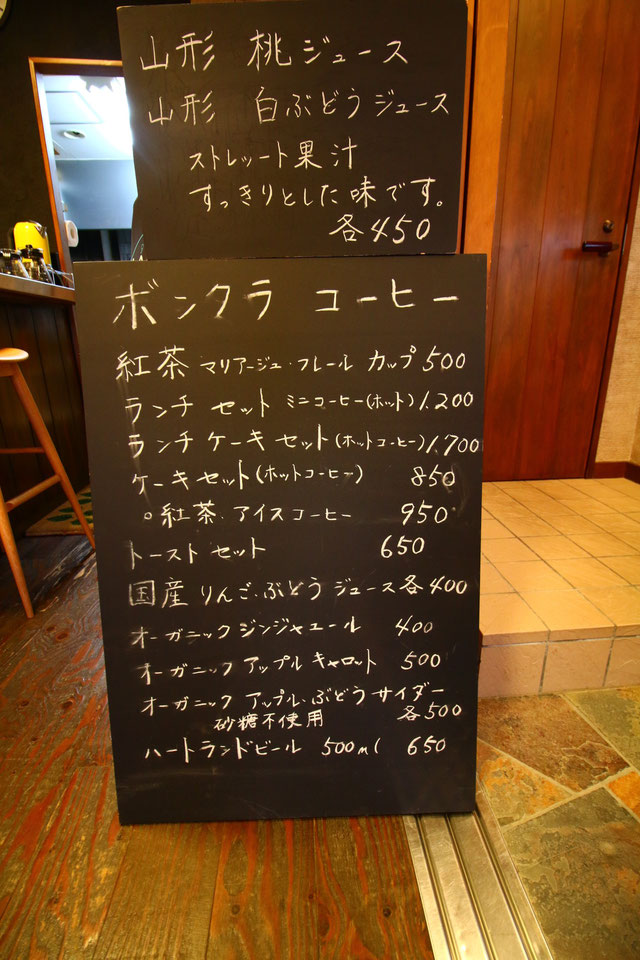 山形 桃ジュース
山形 白ぶどうジュース
ストレート果汁
すっきりとした味です。
各450
ボンクラ コーヒー
紅茶 マリアージュ・フレール カップ 500
ランチ セット ミニコーヒー(ホット) 1,200
ランチケーキセット(ホットコーヒー) 1,700
ケーキセット(ホットコーヒー) 850
。紅茶・アイスコーヒー 950
トースト セット 650
国産 りんご・ぶどうジュース各400
オーガニックジンジャエール 400
オーガニック アップルキャロット 500
オーガニック アップル・ぶどうサイダー
砂糖不使用 各500
ハートランドビール 500ml 650